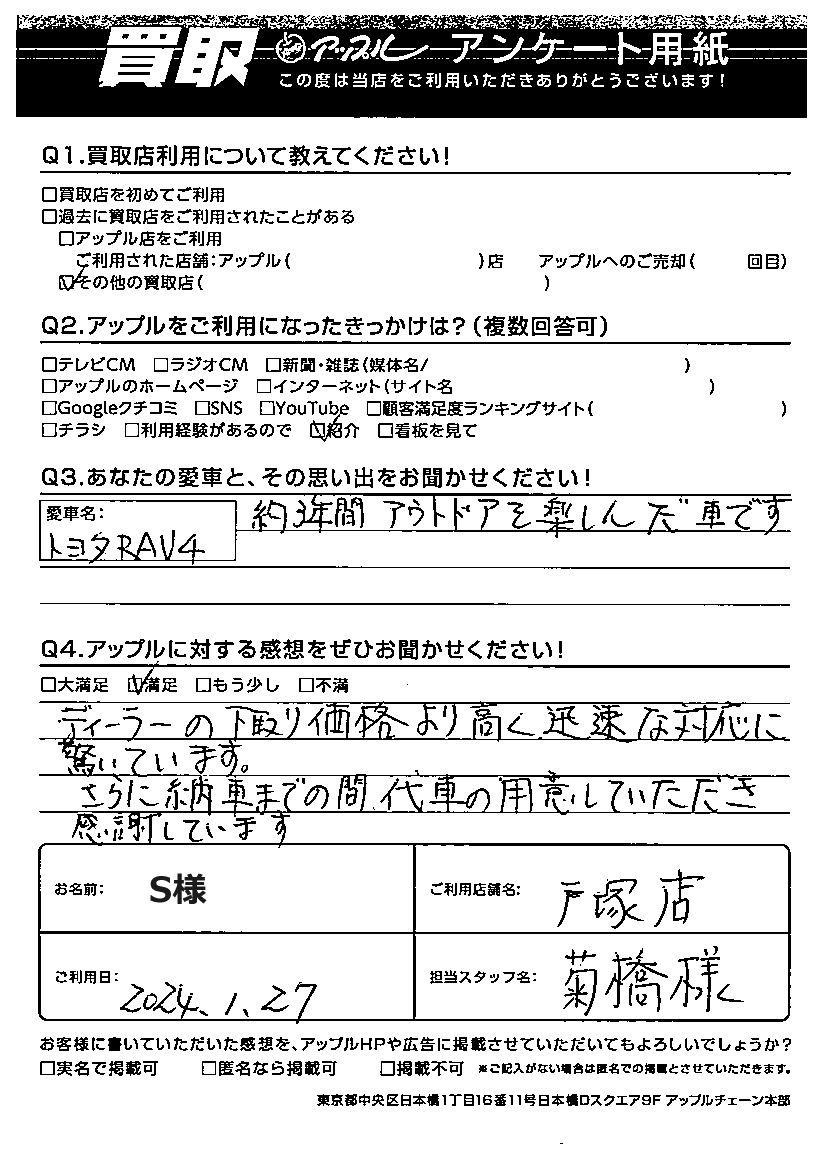 買取 アップル アンケート用紙
この度は当店をご利用いただきありがとうございます!
Q1.買取店利用について教えてください!
□買取店を初めてご利用
□過去に買取店をご利用されたことがある
□アップル店をご利用
ご利用された店舗:アップル( )店 アップルへのご売却( 回目)
☑その他の買取店( )
Q2.アップルをご利用になったきっかけは?(複数回答可)
□テレビCM □ラジオCM □新聞・雑誌(媒体名/ )
□アップルのホームページ □インターネット(サイト名 )
□Googleクチコミ □SNS □YouTube □顧客満足度ランキングサイト( )
□チラシ □利用経験があるので ☑紹介 □看板を見て
Q3.あなたの愛車と、その思い出をお聞かせください!
愛車名:
トヨタRAV4
約3年間 アウトドアを楽しんだ車です
Q4.アップルに対する感想をぜひお聞かせください!
□大満足 ☑満足 □もう少し □不満
ディーラーの下取り価格より高く迅速な対応に
驚いています。
さらに納車までの間代車の用意していただき
感謝しています
お名前: S様 ご利用店舗名: 戸塚店
ご利用日: 2024.1.27 担当スタッフ名: 菊橋様
お客様に書いていただいた感想を、アップルHPや広告に掲載させていただいてもよろしいでしょうか?
□実名で掲載可 □匿名なら掲載可 □掲載不可 ※ご記入がない場合は匿名での掲載とさせていただきます。
東京都中央区日本橋1丁目16番11号日本橋Dスクエア9F アップルチェーン本部